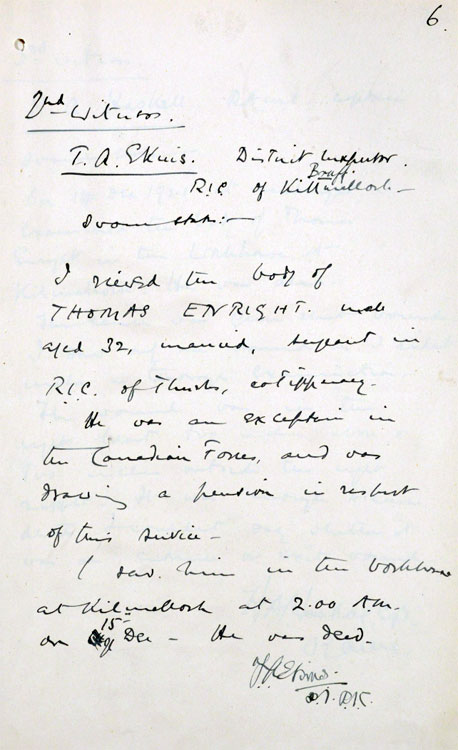 6.
2nd Witness.
T. A. Ekins. District Inspector.
Bruff.
R.I.C. of Kilmallock -
Sworn states :-
I viewed the body of
THOMAS ENRIGHT. male
aged 32, married, sergeant in
R.I.C. of Thurles, co Tipperary.
He was an in
the Canadian Forces, and was
drawing a pension in respect
of this service -
I saw him in the workhouse
at Kilmallock at 2.00 A.M.
on 15 Dec - He was dead.
D.I. R.I.C.